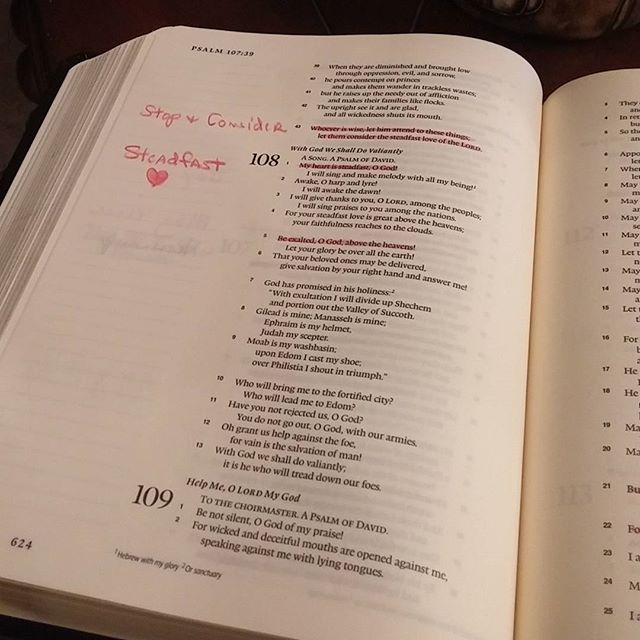 PSALM 107:39
39 When they are diminished and brought low
through oppression, evil, and sorrow,
40 he pours contempt on princes
and makes them wander in trackless wastes;
41 but he raises up the needy out of affliction
and makes their families like flocks.
42 The upright see it and are glad,
and all wickedness shuts its mouth.
Stop + Consider
43 Whoever is wise, let him attend to these things;
let them consider the steadfast love of the LORD.
Steadfast
With God We Shall Do Valiantly
108 A SONG. A PSALM OF DAVID.
1 My heart is steadfast, O God!
I will sing and make melody with all my being!1
2 Awake, O harp and lyre!
I will awake the dawn!
3 I will give thanks to you, O LORD, among the peoples;
I will sing praises to you among the nations.
4 For your steadfast love is great above the heavens;
your faithfulness reaches to the clouds.
5 Be exalted, O God, above the heavens!
Let your glory be over all the earth!
6 That your beloved ones may be delivered,
give salvation by your right hand and answer me!
7 God has promised in his holiness:2
"With exultation I will divide up Shechem
and portion out the Valley of Succoth.
8 Gilead is mine; Manasseh is mine;
Ephraim is my helmet,
Judah my scepter.
9 Moab is my washbasin;
upon Edom I cast my shoe;
over Philistia I shout in triumph."
10 Who will bring me to the fortified city?
Who will lead me to Edom?
11 Have you not rejected us, O God?
You do not go out, O God, with our armies.
12 Oh grant us help against the foe,
for vain is the salvation of man!
13 With God we shall do valiantly;
it is he who will tread down our foes.
Help Me, O LORD My God
109 TO THE CHOIRMASTER. A PSALM OF DAVID.
1 Be not silent, O God of my praise!
2 For wicked and deceitful mouths are opened against me,
speaking against me with lying tongues.
624
1 Hebrew with my glory 2 Or sanctuary
3 They
4 In ret
5 So th
6 Appo
7 When
8 May
9 May
10 May
11 May
12 Let t
13 May
14 May
15 Let t
16 For
17 He
18 He
19 Ma
20 Ma
21 Bu
22 Fo
23 I a
24 M
25 I